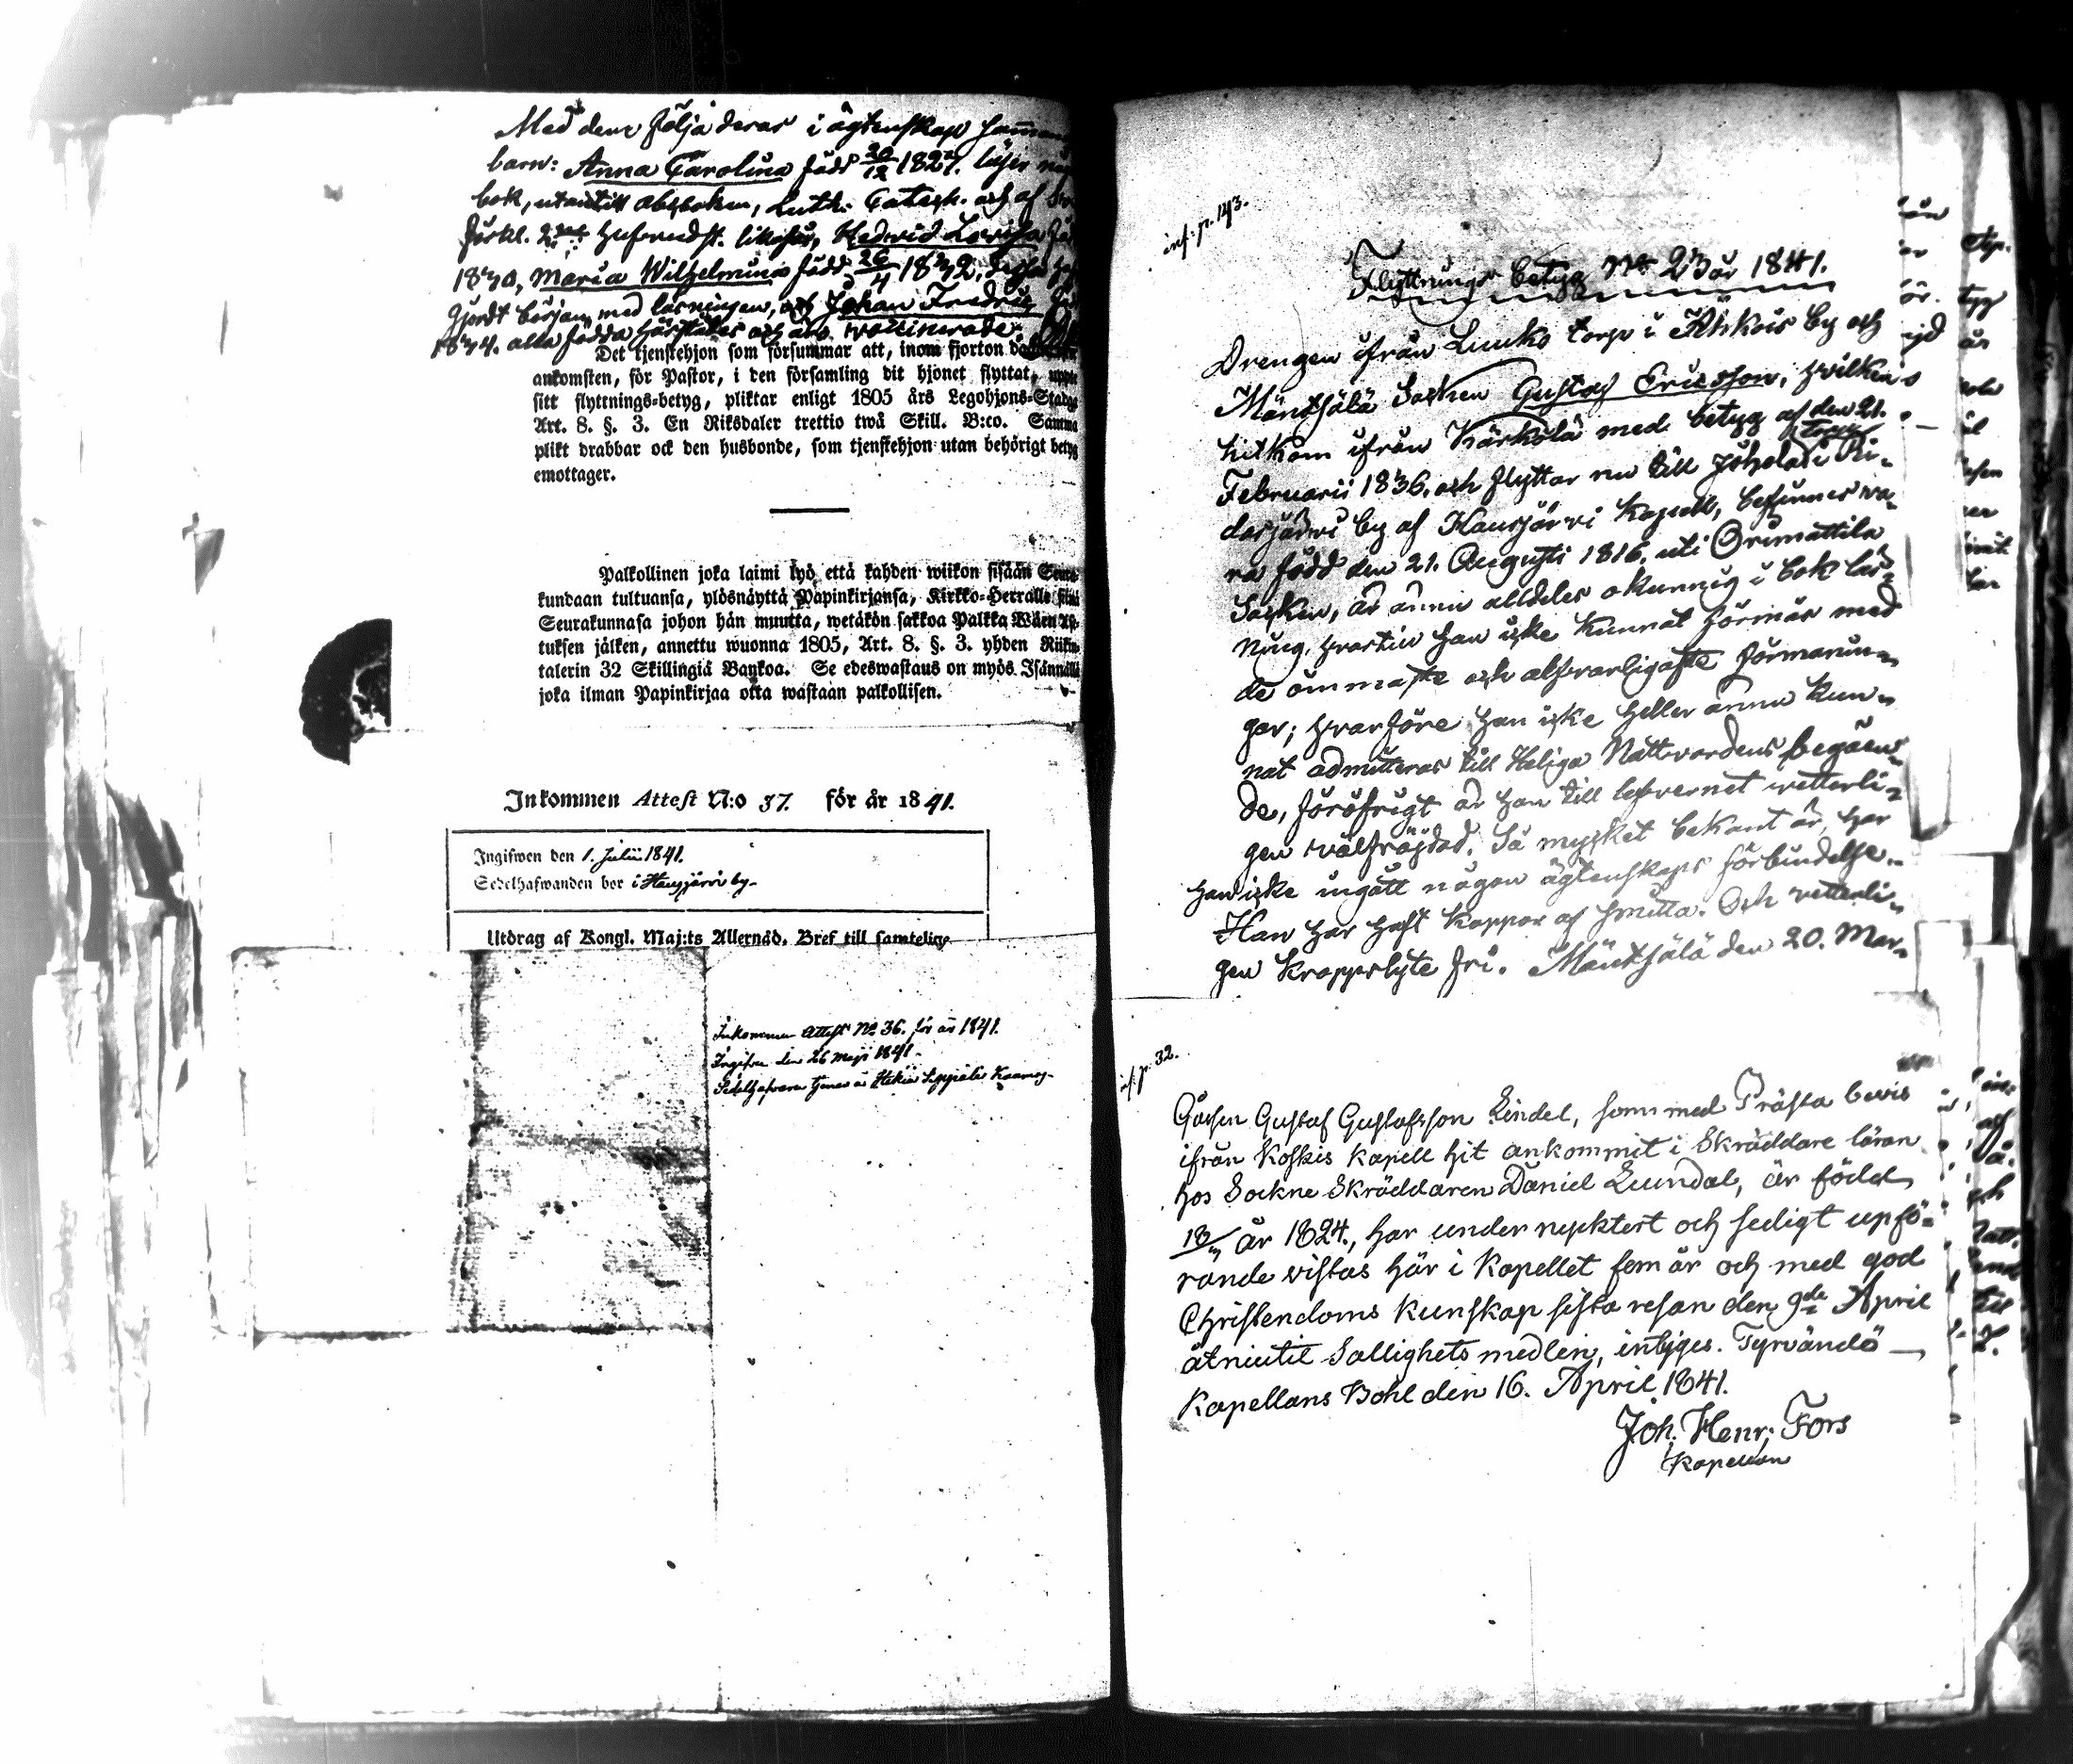 Med dem följa deras i ägtenskap
barn: Anna Carolina född 20/12 1827. läser
bok, utantill abcboken, Luth. Catech. och af
förkl. Hedvid Lovisa
1830, Maria Wilhelmina född 26/4 1832, dessa
gjordt början med läsningen, och Johan Fredric
1834. alla födda härstädes och äro vaccinerade.
Det tjenstehjon som försummar att, inom fjorton
ankomsten, för Pastor, i den församling dit hjonet flyttat,
sitt flyttnings-betyg, pliktar enligt 1805 års Legohjons-Stadga
Art. 8. §. 3. En Riksdaler trettio twå Skill. B:co. Samma
plikt drabbar ock den husbonde, som tjenstehjon utan behörigt betyg
emottager.
Palkollinen joka laimi lyö että kahden wiikon sisään Seura-
kundaan tultuansa, ylösnäyttä Papinkirjansa, Kirkko-Herralle siinä
Seurakunnasa johon hän muutta, wetäkön sakkoa Palkka Wäen As-
tuksen jälken, annettu wuonna 1805, Art. 8. §. 3. yhden Riikin-
talerin 32 Skillingiä Bankoa. Se edeswastaus on myös Isännällä
joka ilman Papinkirjaa otta wastaan palkollisen.
Inkommen Attest N:o 37. för år 1841.
Ingifwen den 1. Julii 1841.
Sedelhafwanden bor i Hausjärvi by.
Utdrag af Kongl. Maj:ts Allernåd. Bref till samtelige
Inkommen Attest No 36. för år 1841.
Ingifven den 26 Maji 1841.
Sedelhafvaren tjenar å
inf. p. 143.
Flyttnings betyg No 23 år 1841.
Drengen ifrån Luuks torp i by och
Mäntsälä Socken Gustaf Ericsson, hvilken
hitkom ifrån Kärkölä med betyg af den 21.
Februarii 1836, och flyttar nu till torp i Ri-
dasjärvi by af Hausjärvi Kapell, befinnes va-
ra född den 21. Augusti 1816. uti Orimattila
Socken, är ännu alldeles okunnig i bok läs-
ning, hvartin han icke kunnat förmås med
de ömmaste och alfvarligaste förmanin-
gar; hvarföre han icke heller ännu kun-
nat admitteras till Heliga Nattvardens begåen-
de, föröfrigt är han till lefvernet vetterli-
gen välfräjdad. Så mycket bekant är, har
han icke ingått någon ägtenskaps förbindelse.
Han har haft koppor af smitta. Och vetterli-
gen kroppslyte fri. Mäntsälä den 20. Mar-
inf. p. 32.
Gossen Gustaf Gustafsson Lindel, som med Prästa bevis
ifrån Koskis Kapell hit ankommit i Skräddare läran
hos Sockne Skräddaren Daniel Lundal, är född
år 1824., har under nycktert och sedigt upfö-
rande vistas här i Kapellet fem år och med god
Christendoms kunskap sista resan den 9de April
åtniutit Salighets medlen, intyges. Tyrvändö
Kapellans Bohl den 16. April 1841.
Joh. Henr. Fors
Kapellan